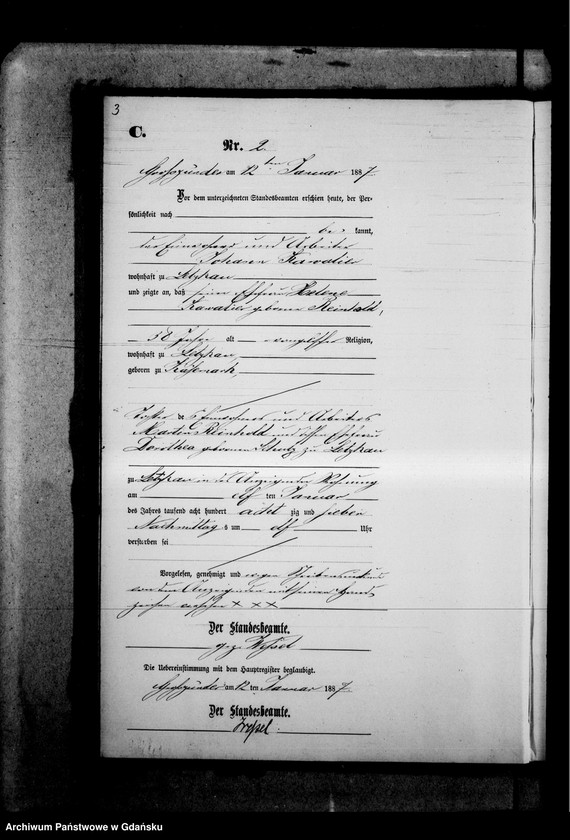 3
C.
Nr. 2.
am 12ten Januar 1887
Vor dem unterzeichneten Standesbeamten erschien heute, der Per-
sönlichkeit nach
be kannt,
der Einwohner und Arbeiter
Johann
wohnhaft zu Letzkau
und zeigte an, daß seine Ehefrau Helene
geborne Reinhold,
50 Jahre alt evangelischer Religion,
wohnhaft zu Letzkau,
geboren zu Käsemark,
Tochter des Einwohners und Arbeiters
Martin Reinhold und dessen Ehefrau
Dorothea geborenen zu Letzkau
zu Letzkau in des Anzeigenden Wohnung
am elf ten Januar
des Jahres tausend acht hundert acht zig und sieben
Nachmittags um elf Uhr
verstorben sei
Vorgelesen, genehmigt und wegen
von dem Anzeigenden mit seinem Hand-
zeichen versehen + + +
Der Standesbeamte.
gez. Wessel
Die Uebereinstimmung mit dem Hauptregister beglaubigt.
am 12 ten Januar 1887
Der Standesbeamte.
Wessel.
Archiwum Państwowe w Gdańsku